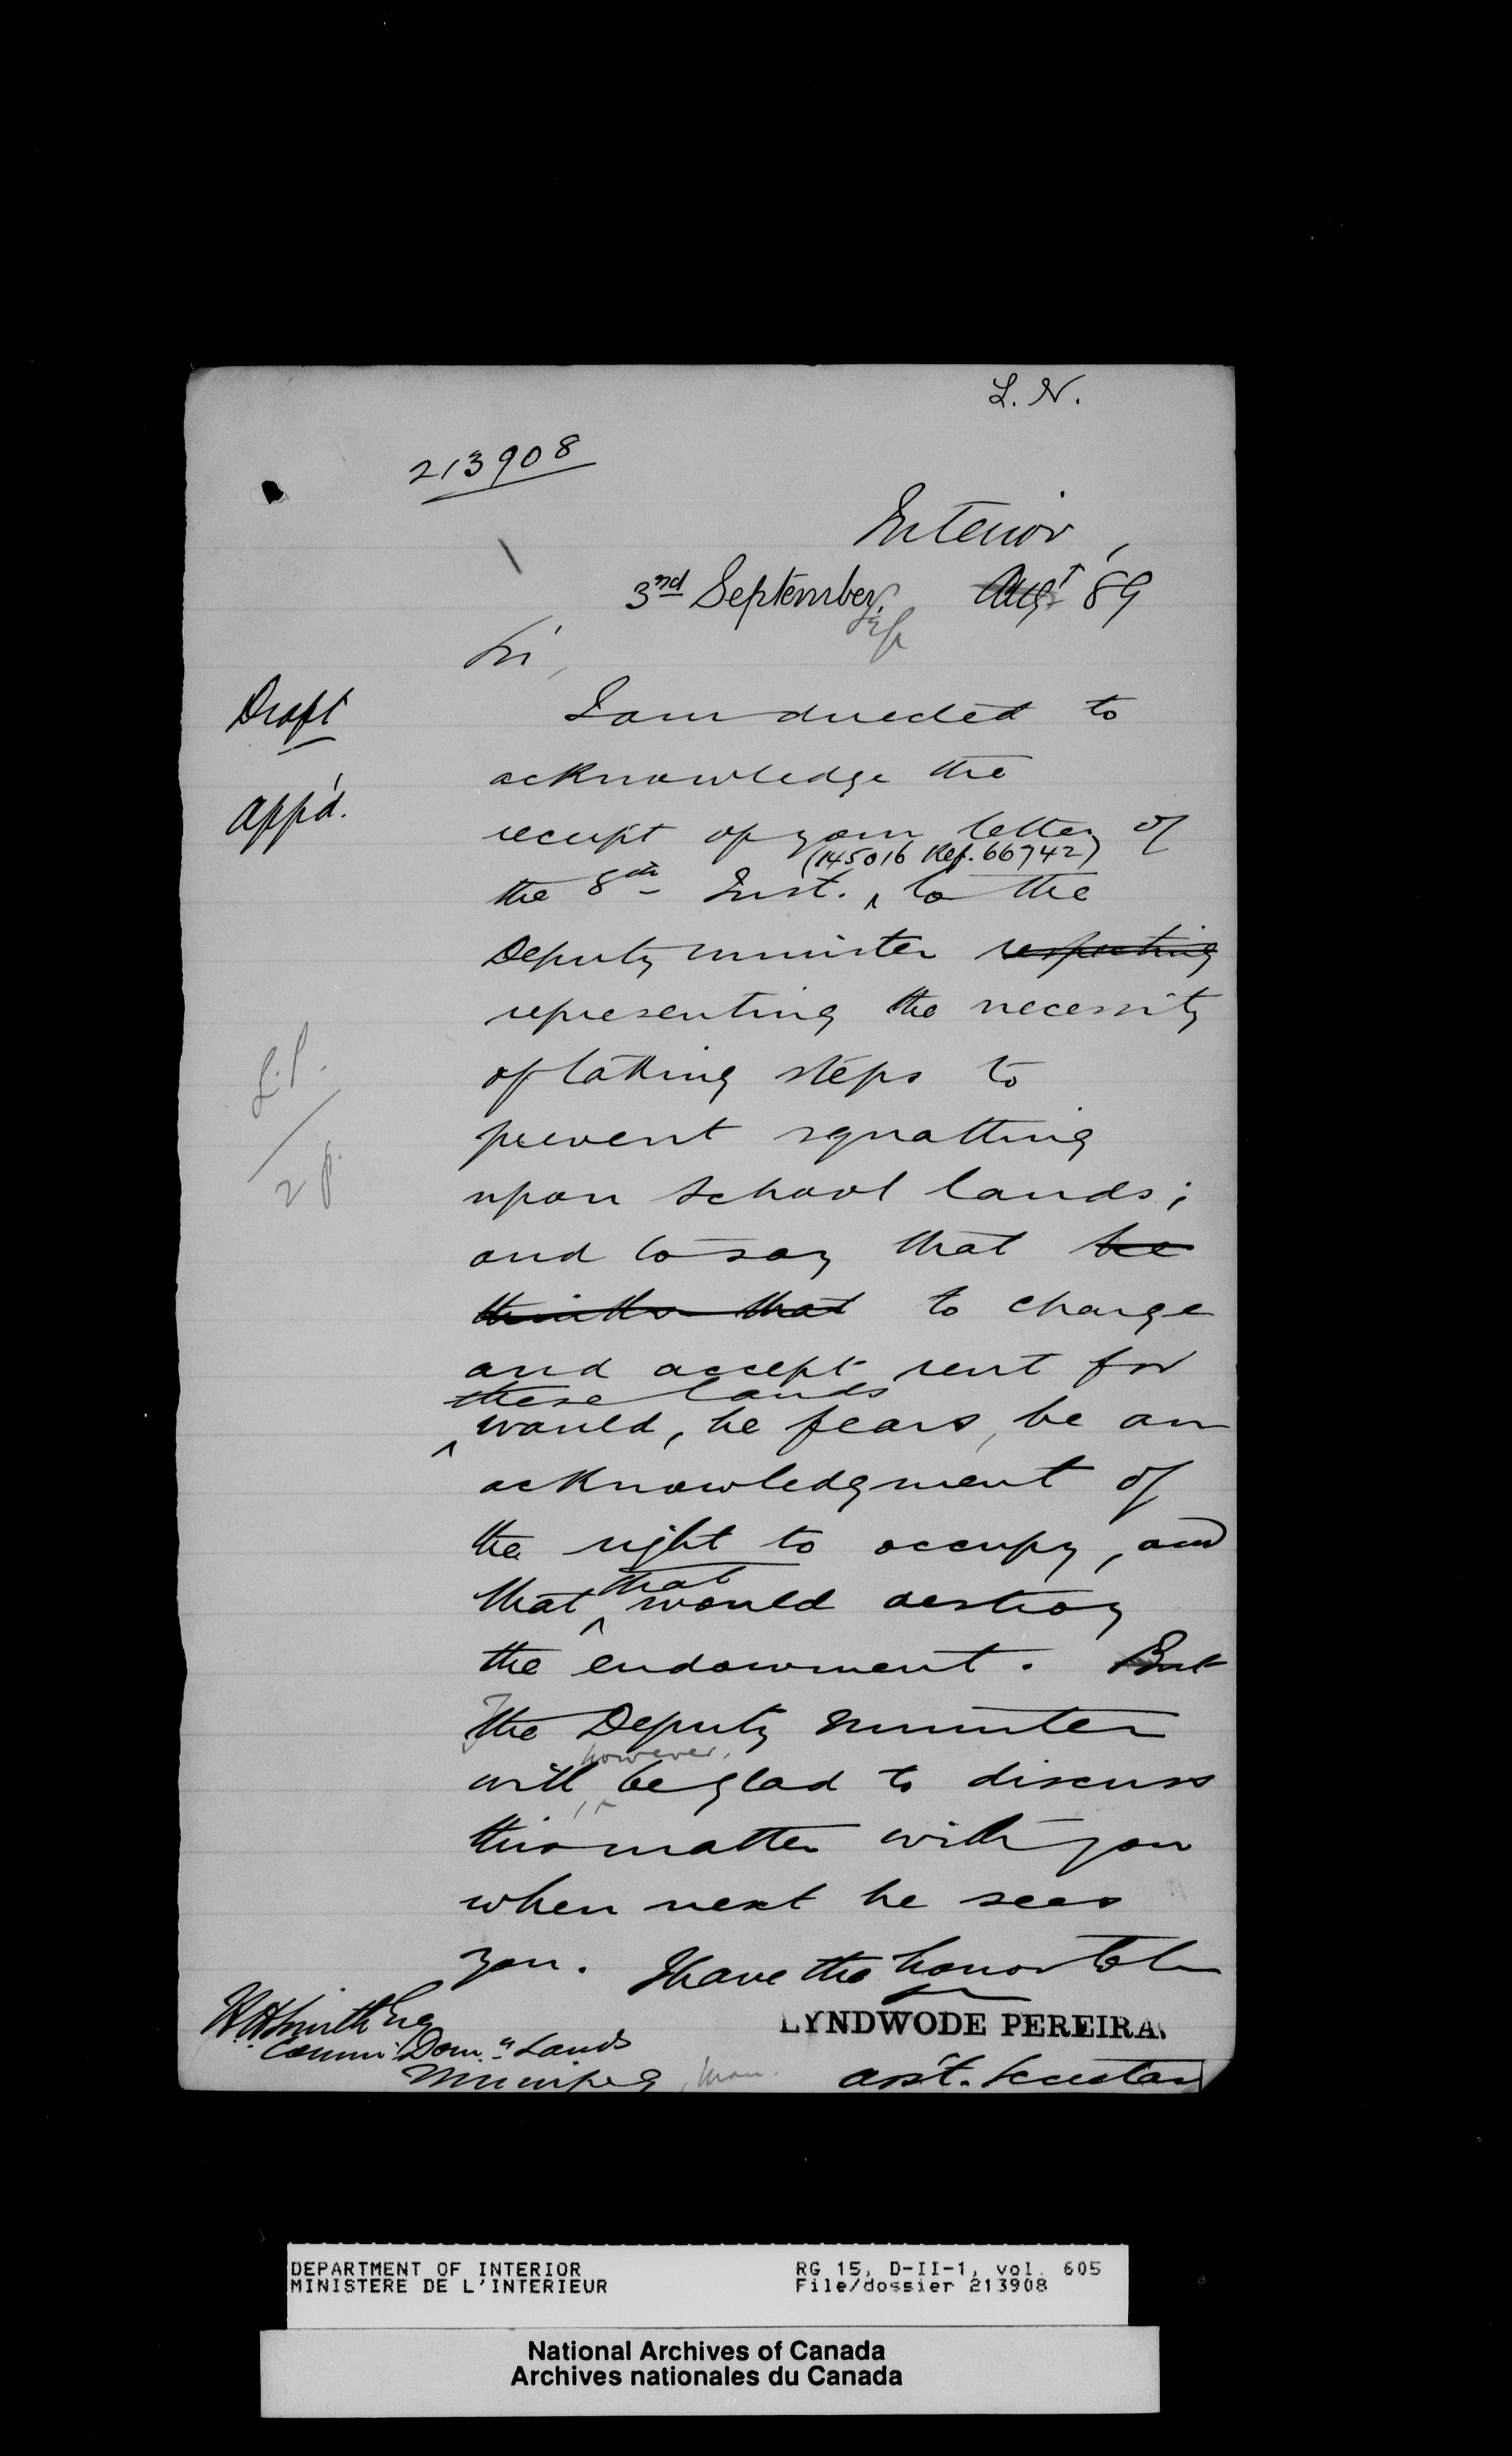 L. N.
213908
Interior,
3rd September. Augt 89
Sir,
Draft
I am directed to
acknowledge the
App'd.
receipt of your letter of
(145016 Ref. 66742)
the 8th Inst. ^ to the
Deputy Minister respecting
representing the necessity
of taking steps to
prevent squatting
2 p.
upon School lands;
and to say that he
thinks that to charge
and accept rent for
these lands
^ would, he fears, be an
acknowledgment of
the right to occupy, and
that
that ^ would destroy
the endowment. But
The Deputy Minister
however,
will, ^ be glad to discuss
this matter with you
when next he sees
you. I have the honor to be
H. H. Smith Esq
LYNDWODE PEREIRA
Commr. Domn Lands
Winnipeg, Man.
Ass't. Secretary
DEPARTMENT OF INTERIOR RG 15, D-II-1, vol. 605
MINISTERE DE L'INTERIEUR File/dossier 213908
National Archives of Canada
Archives nationales du Canada